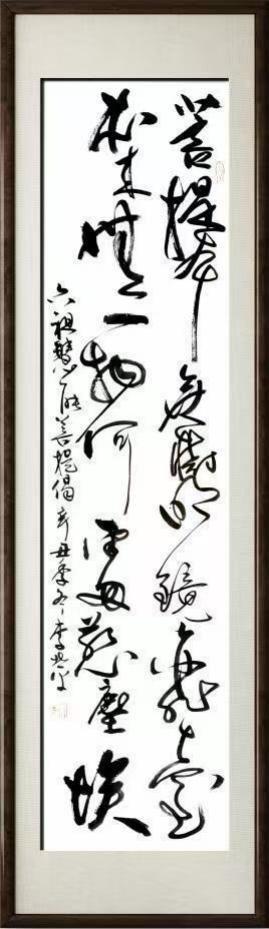 菩提本無樹明鏡亦非臺
本来無一物何處惹塵埃
六祖慧能菩提偈 辛丑季冬 李